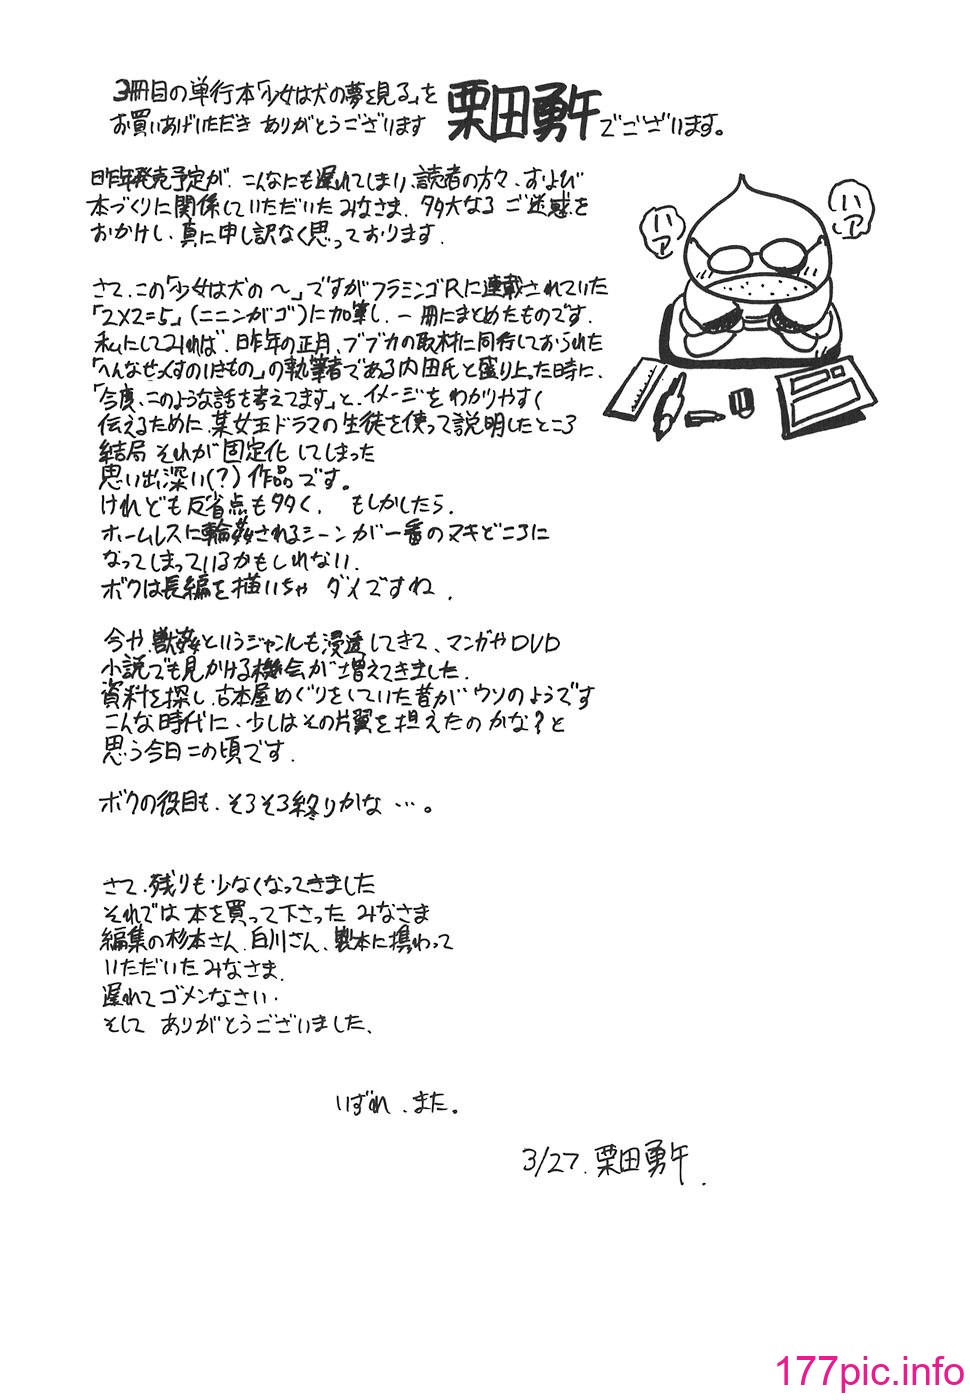 3冊目の単行本「少女は犬の夢を見る」を
お買いあげいただき ありがとうございます
栗田勇午でございます。
昨年発売予定が、こんなにも遅れてしまい、読者の方々、および
本づくりに関係していただいたみなさま、多大なるご迷惑を
おかけし、真に申し訳なく思っております.
ハア
ハア
さて、この「少女は犬の〜」ですがフラミンゴRに連載されていた
「2×2=5」(ニニンがゴ)に加筆し、一冊にまとめたものです.
私にしてみれば、昨年の正月、ブブカの取材に同行しておられた
「へんなせっくすのいきもの」の執筆者である内田氏と盛り上った時に、
「今度、このような話を考えてます」と、イメージをわかりやすく
伝えるために、某女王ドラマの生徒を使って説明したところ
結局 それが固定化してしまった
思い出深い(?)作品です。
けれども反省点も多く、もしかしたら、
ホームレスに輪姦されるシーンが一番のヌキどころに
なってしまっているかもしれない.
ボクは長編を描いちゃ ダメですね.
今や、獣姦というジャンルも浸透してきて、マンガやDVD
小説でも見かける機会が増えてきました.
資料を探し、古本屋めぐりをしていた昔がウソのようです
こんな時代に、少しはその片翼を担えたのかな?と
思う今日この頃です.
ボクの役目も、そろそろ終りかな…。
さて、残りも少なくなってきました
それでは 本を買って下さった みなさま
編集の杉本さん、白川さん、製本に携わって
いただいたみなさま.
遅れてゴメンなさい.
そして ありがとうございました、
いずれ、また。
3/27. 栗田勇午.
177pic.info